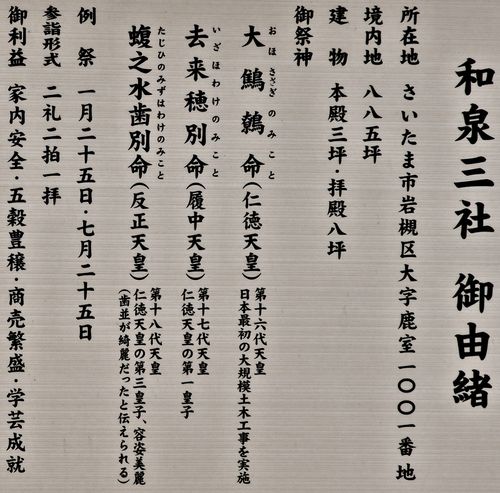 和泉三社 御由緒
所在地 さいたま市岩槻区大字鹿室一〇〇一番地
境内地 八八五坪
建物 本殿三坪・拝殿八坪
御祭神
おほさざぎのみこと
大鷦鷯命(仁徳天皇)
第十六代天皇
日本最初の大規模土木工事を実施
いざほわけのみこと
去来穂別命(履中天皇)
第十七代天皇
仁徳天皇の第一皇子
たじひのみずはわけのみこと
蝮之水歯別命(反正天皇)
第十八代天皇
仁徳天皇の第三皇子、容姿美麗
(歯並が綺麗だったと伝えられる)
例祭 一月二十五日・七月二十五日
参詣形式 二礼二拍一拝
御利益 家内安全・五穀豊穣・商売繁盛・学芸成就